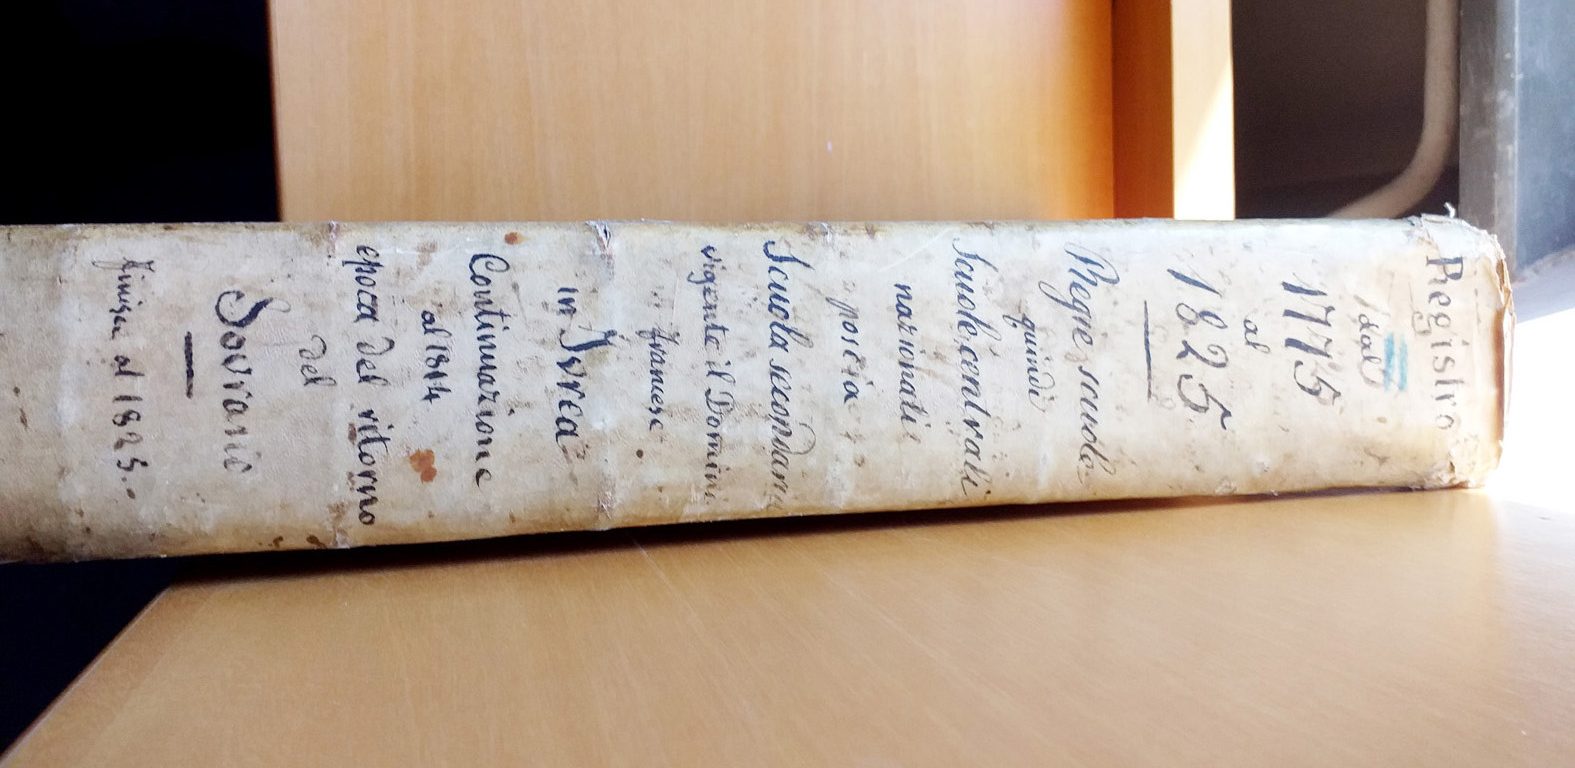 Registro
dal
1775
al
1825
Regie scuole
quindi
Scuole centrali
nazionali
poscia
Scuola secondaria
vigente il Dominio
Francese
in Ivrea
Continuazione
al 1814
epoca del ritorno
del
Sovrano
finisce al 1825.